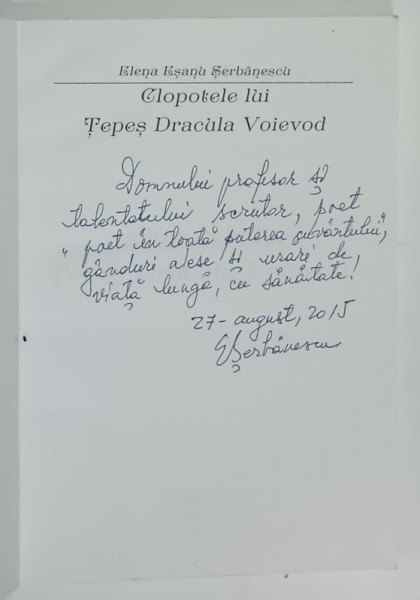 Elena Eșanu Șerbănescu
Clopotele lui
Țepeș Dracula Voievod
Domnului profesor și
talentatului scriitor, poet
"poet în toată puterea cuvântului,"
gânduri alese și urări de,
viață lungă, cu sănătate!
27-august, 2015
EȘerbănescu